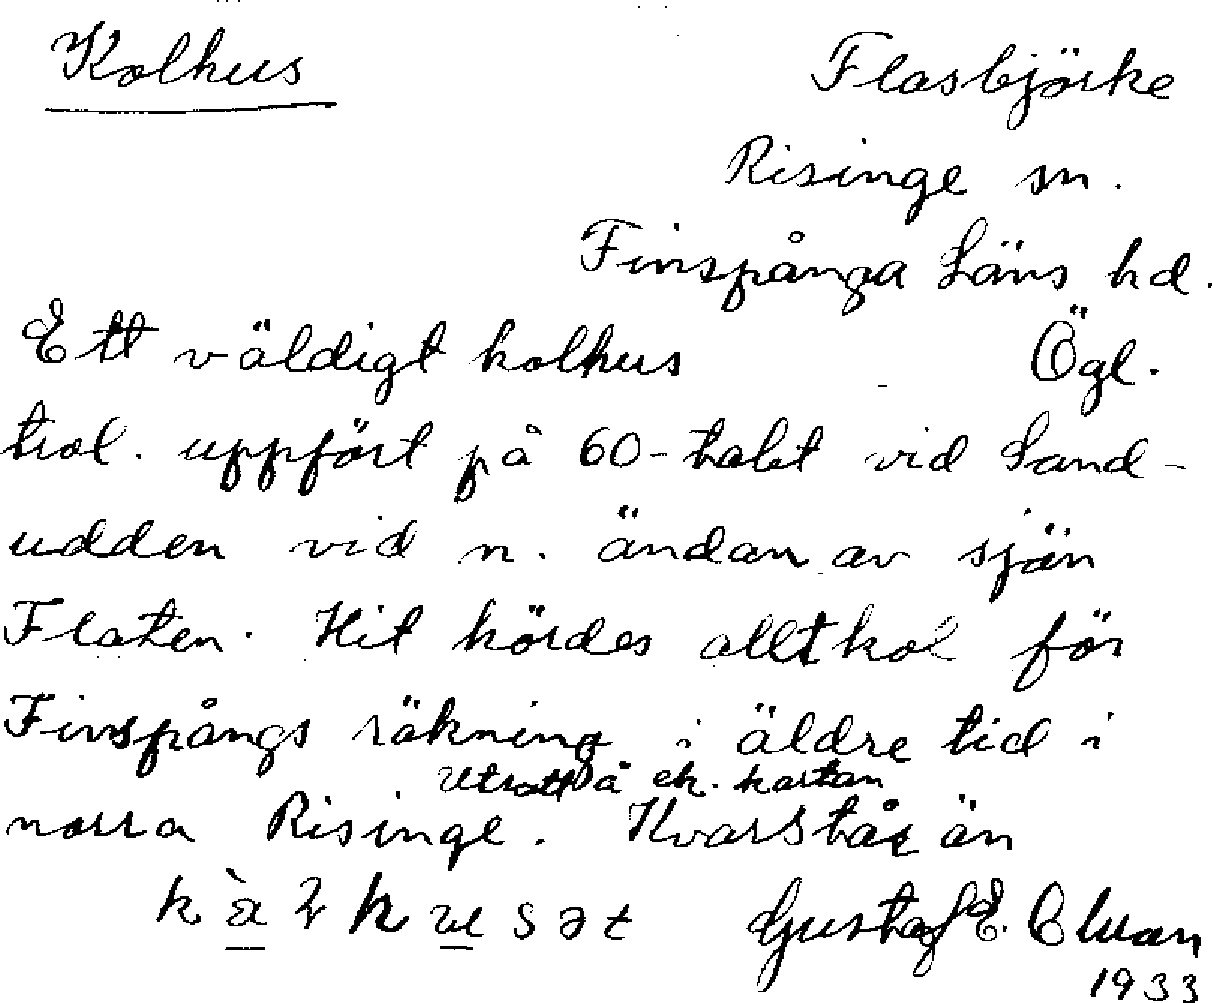 Kolhus
Flasbjörke
Risinge sn.
Finspånga Läns hd.
Ett väldigt kolhus Ögl.
trol. uppfört på 60-talet vid Sand-
udden vid n. ändan av sjön
Flaten. Hit kördes allt kol för
Finspångs räkning i äldre tid i
Utsatt å ek. kartan
norra Risinge. Kvarstår än
Gustaf E.
1933